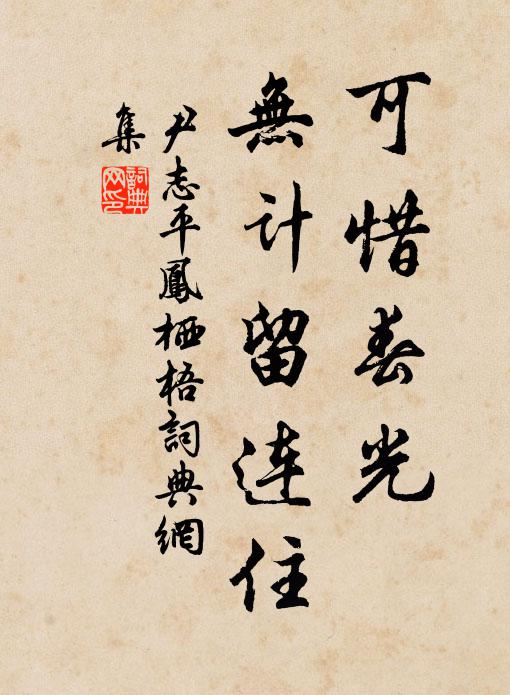 可惜春光
無计留连住
尹志平鳳栖梧詞典網
集
詞典网印